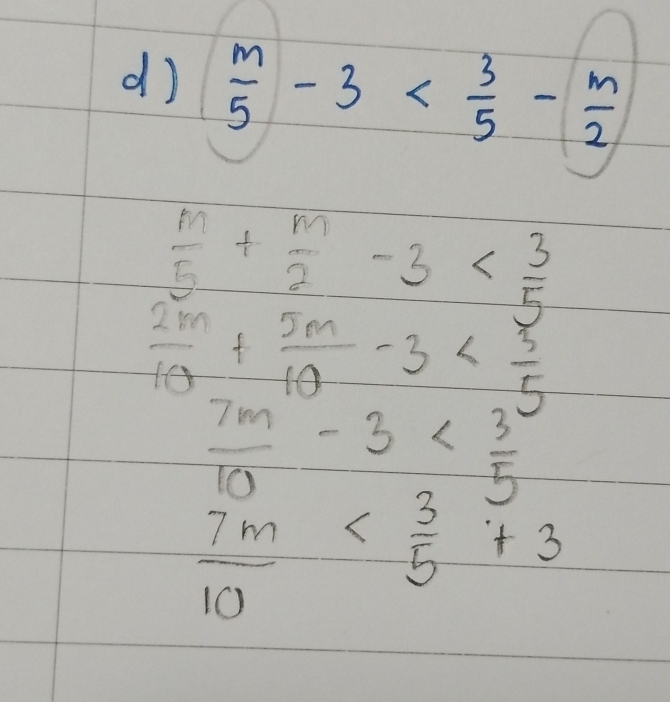 d) m/5 - 3 < 3/5 - m/2
m/5 + m/2 - 3 < 3/5
2m/10 + 5m/10 - 3 < 3/5
7m/10 - 3 < 3/5
7m/10 < 3/5 + 3